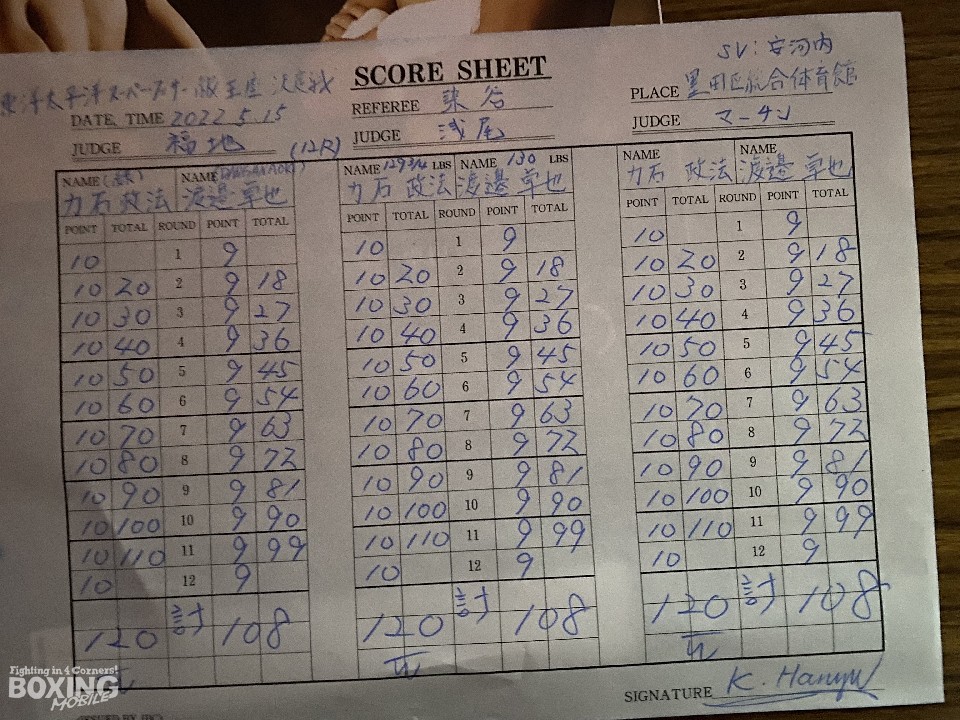 SV: 安河内
SCORE SHEET
東洋太平洋スーパーフェザー級王座決定戦
REFEREE 染谷
PLACE 墨田区総合体育館
DATE, TIME 2022 5.15
JUDGE 福地 (12R)
JUDGE 浅尾
JUDGE マーチン
NAME NAME
力石 政法 渡邉 卓也
POINT TOTAL ROUND POINT TOTAL
10 1 9
10 20 2 9 18
10 30 3 9 27
10 40 4 9 36
10 50 5 9 45
10 60 6 9 54
10 70 7 9 63
10 80 8 9 72
10 90 9 9 81
10 100 10 9 90
10 110 11 9 99
10 12 9
120 計 108
NAME 129 3/4 LBS NAME 130 LBS
力石 政法 渡邉 卓也
POINT TOTAL ROUND POINT TOTAL
10 1 9
10 20 2 9 18
10 30 3 9 27
10 40 4 9 36
10 50 5 9 45
10 60 6 9 54
10 70 7 9 63
10 80 8 9 72
10 90 9 9 81
10 100 10 9 90
10 110 11 9 99
10 12 9
120 計 108
NAME NAME
力石 政法 渡邉 卓也
POINT TOTAL ROUND POINT TOTAL
10 1 9
10 20 2 9 18
10 30 3 9 27
10 40 4 9 36
10 50 5 9 45
10 60 6 9 54
10 70 7 9 63
10 80 8 9 72
10 90 9 9 81
10 100 10 9 90
10 110 11 9 99
10 12 9
120 計 108
SIGNATURE K. Hanyu
Fighting in 4 Corners!
BOXING
MOBILE